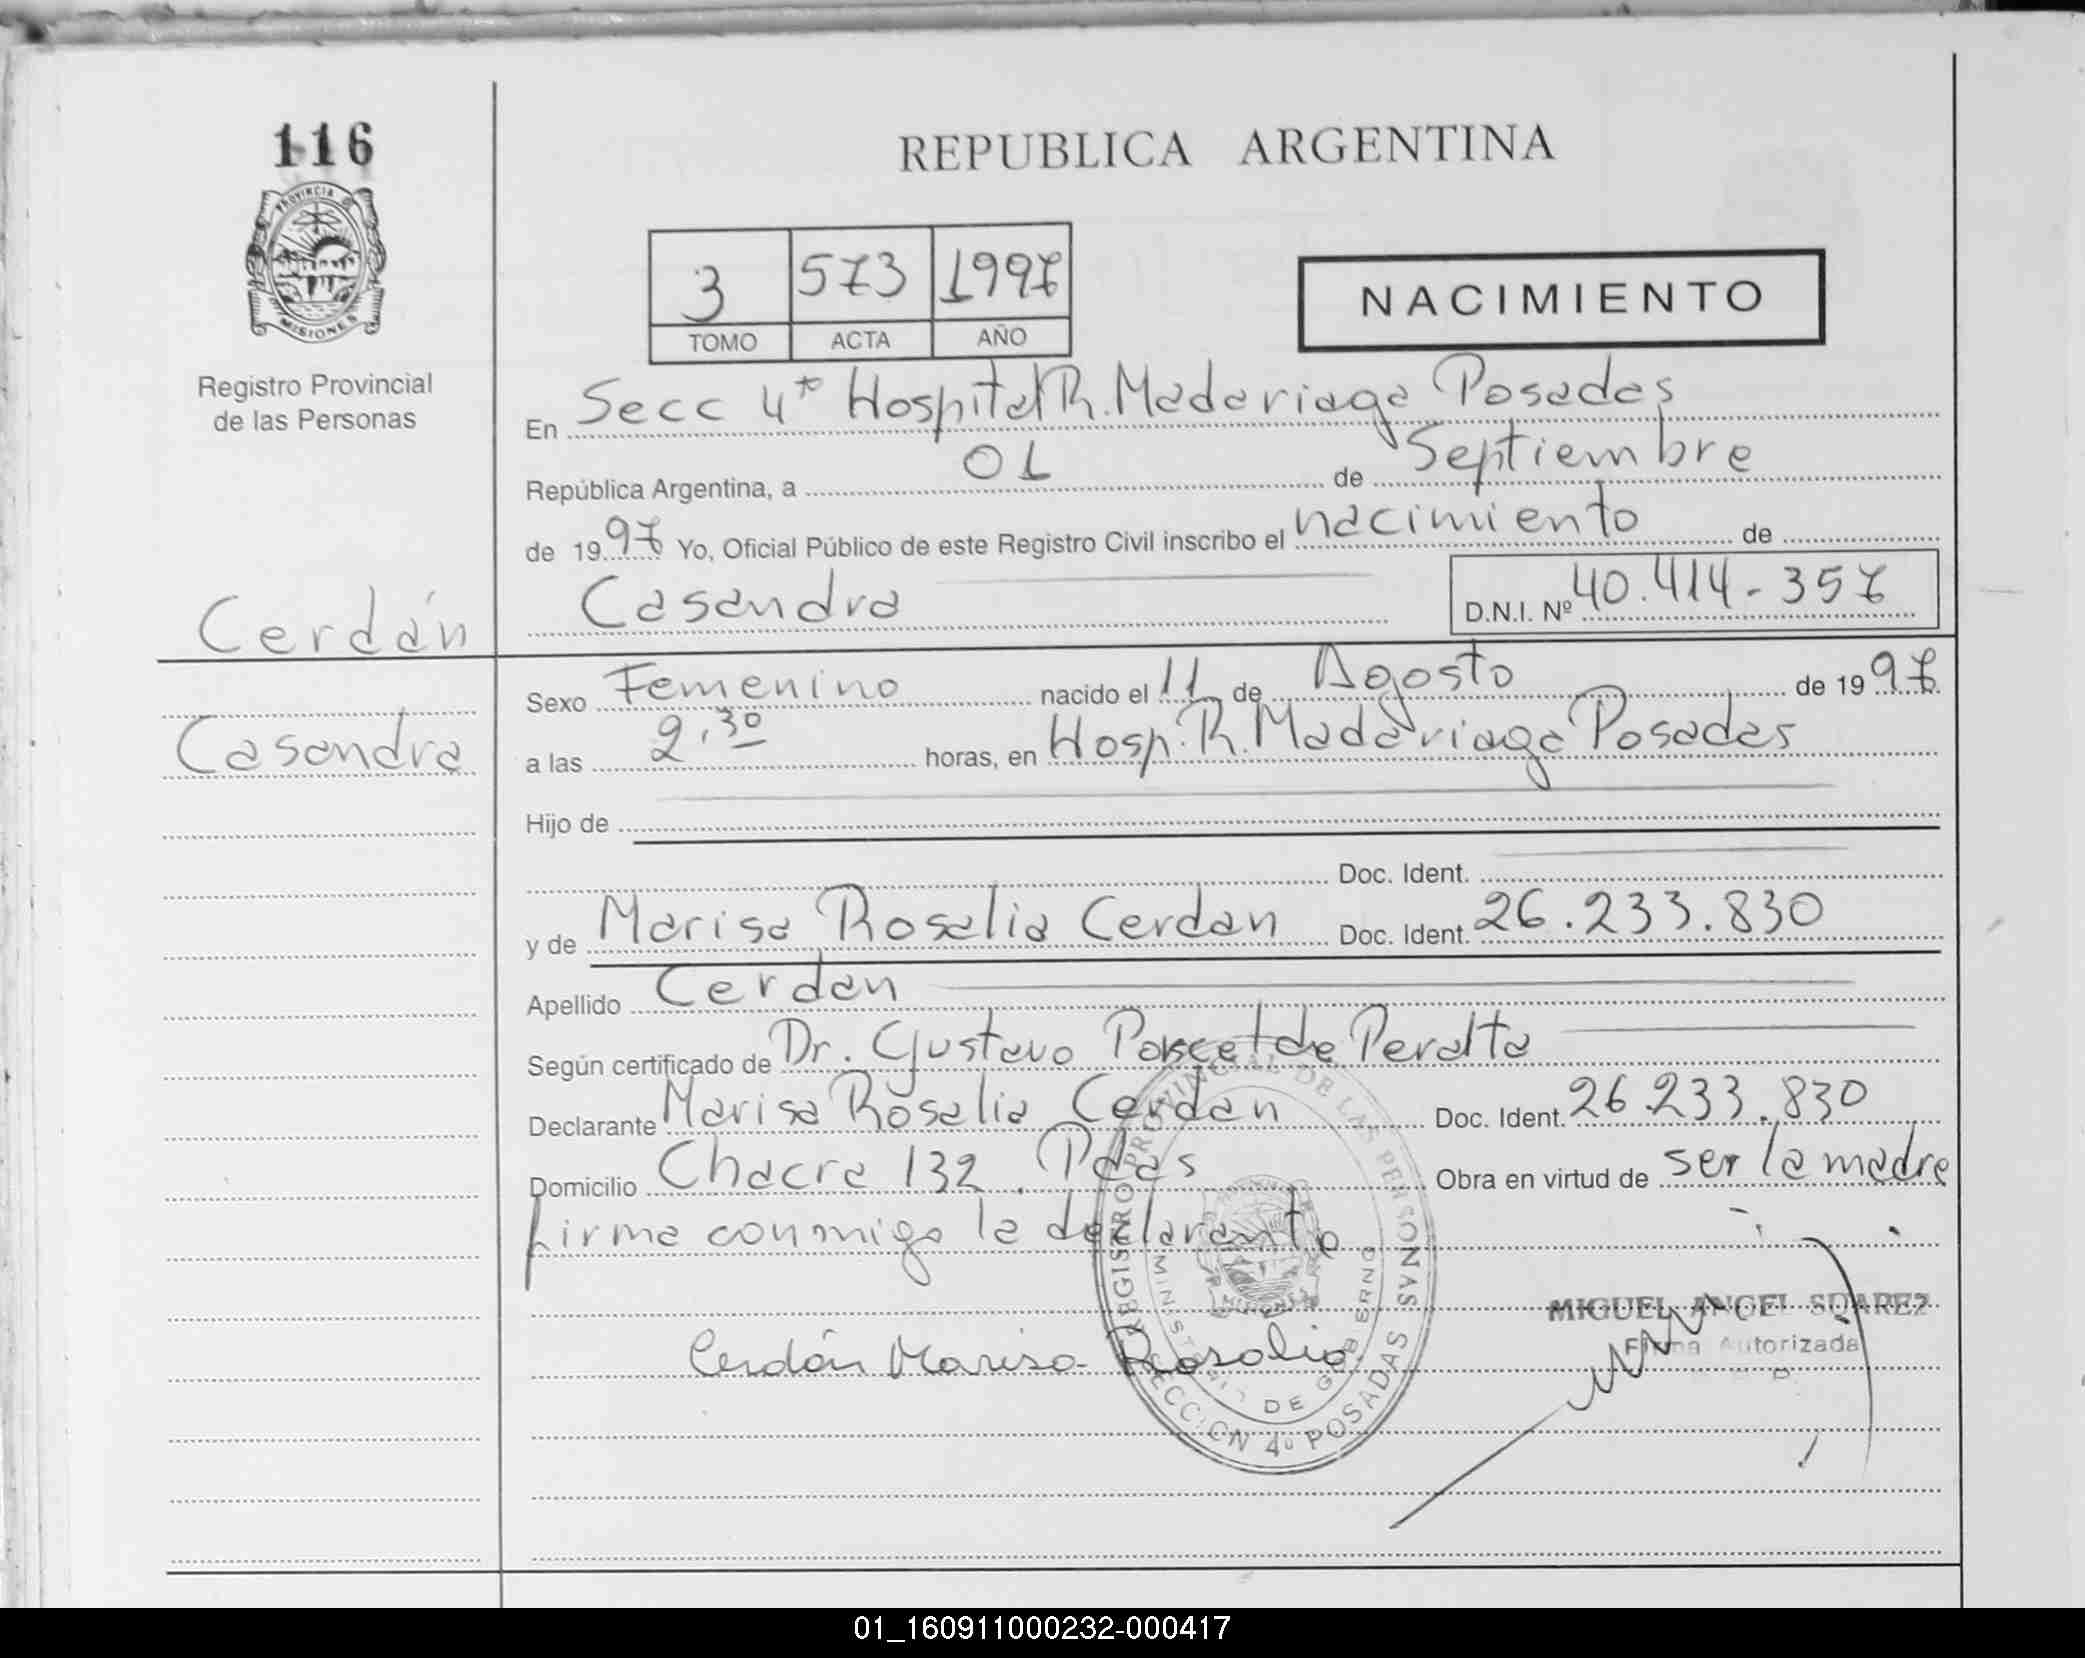 116
PROVINCIA D
MISIONES
Registro Provincial
de las Personas
Cerdán
Casandra
REPUBLICA ARGENTINA
3 573 1997
TOMO ACTA AÑO
NACIMIENTO
En Secc 4ta Hospital R. Madariaga Posadas
República Argentina, a 01 de Septiembre
de 1997 Yo, Oficial Público de este Registro Civil inscribo el nacimiento de
Casandra D.N.I. Nº 40.414-357
Sexo Femenino nacido el 11 de Agosto de 1997
a las 2,30 horas, en Hosp. R. Madariaga Posadas
Hijo de
Doc. Ident.
y de Marisa Rosalia Cerdan Doc. Ident. 26.233.830
Apellido Cerdan
Según certificado de Dr. Gustavo de Peralta
Declarante Marisa Rosalia Cerdan Doc. Ident. 26.233.830
Domicilio Chacra 132. Pdas Obra en virtud de ser la madre
firma conmigo la declarante
REGISTRO PROVINCIAL DE LAS PERSONAS
MINISTERIO DE GOBIERNO
SECCION 4º POSADAS
MIGUEL ANGEL SUAREZ
Firma Autorizada
Cerdán Marisa Rosalia
01_160911000232-000417